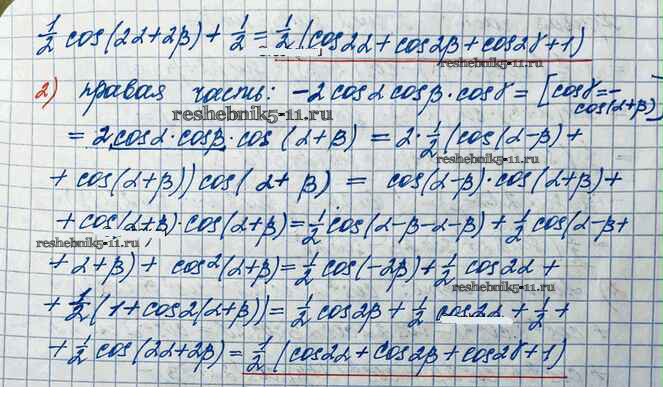 1/2 cos(2α+2β) + 1/2 = 1/2 (cos2α + cos2β + cos2γ + 1)
reshebnik5-11.ru
2) правая часть: -2 cosα cosβ · cosγ = [cosγ = - cos(α+β)]
reshebnik5-11.ru
= 2 cosα · cosβ · cos (α + β) = 2 · 1/2 (cos(α-β) +
reshebnik5-11.ru
+ cos(α+β)) cos(α + β) = cos(α-β) · cos(α+β) +
+ cos(α+β) · cos(α+β) = 1/2 cos(α-β-α-β) + 1/2 cos(α-β+
reshebnik5-11.ru
+ α+β) + cos²(α+β) = 1/2 cos(-2β) + 1/2 cos2α +
reshebnik5-11.ru
+ 1/2 (1 + cos2(α+β)) = 1/2 cos2β + 1/2 cos2α + 1/2 +
+ 1/2 cos(2α+2β) = 1/2 (cos2α + cos2β + cos2γ + 1)
reshebnik5-11.ru